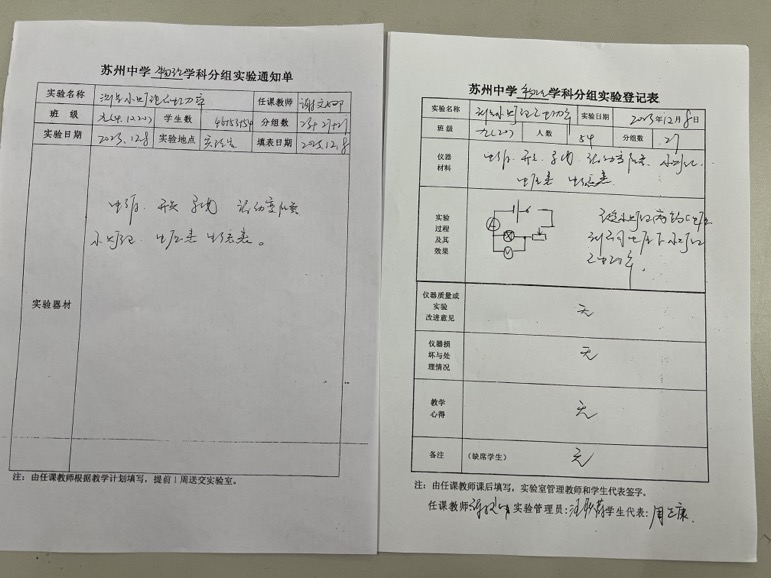 苏州中学 物理 学科分组实验通知单
实验名称 测量小灯泡电功率 任课教师
班级 学生数 分组数
实验日期 2023.12.8 实验地点 实验室 填表日期 2023.12.8
电源、开关 导线 滑动变阻器
小灯泡、电压表 电流表。
实验器材
注：由任课教师根据教学计划填写，提前1周送交实验室。
苏州中学 物理 学科分组实验登记表
实验名称 测量小灯泡电功率 实验日期 2023年12月8日
班级 人数 54 分组数 27
仪器
材料
电源、开关、导线、滑动变阻器、小灯泡、
电压表 电流表
实验
过程
及其
效果
A
V
仪器质量或
实验
改进意见
无
仪器损
坏与处
理情况
无
教学
心得
无
备注 (缺席学生) 无
注：由任课教师课后填写，实验室管理教师和学生代表签字。
任课教师: 实验管理员: 学生代表: